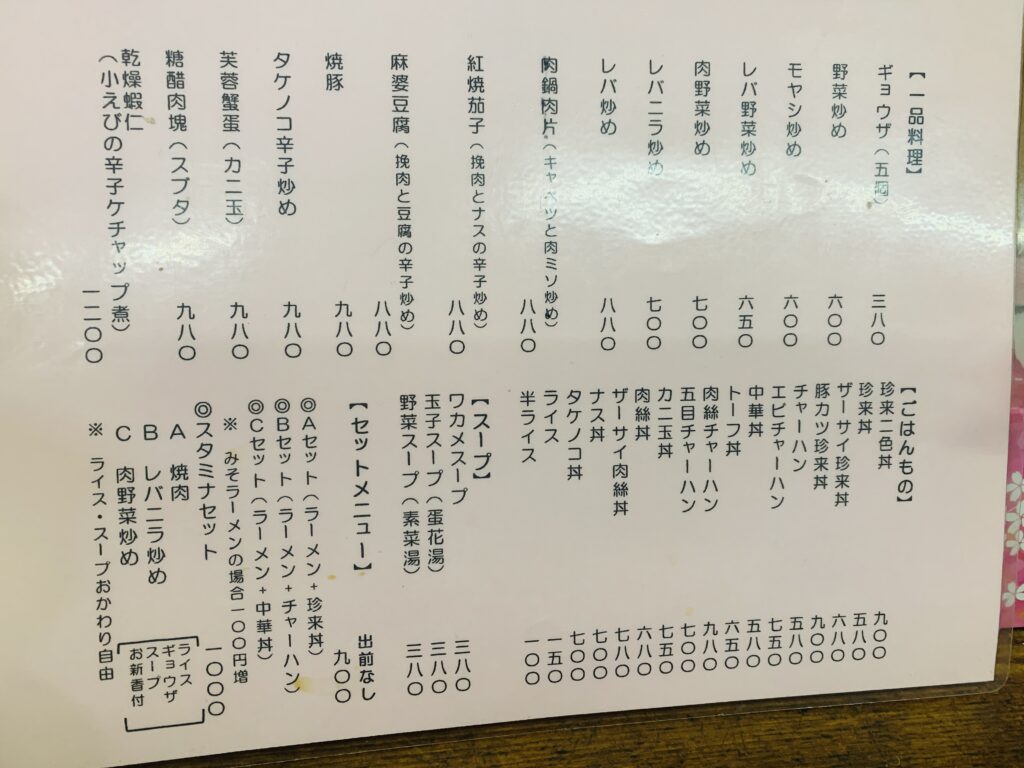 【一品料理】
ギョウザ(五個) 三八〇
野菜炒め 六〇〇
モヤシ炒め 六〇〇
レバ野菜炒め 六五〇
肉野菜炒め 七〇〇
レバニラ炒め 七〇〇
レバ炒め 八八〇
肉鍋肉片(キャベツと肉ミソ炒め) 八八〇
紅焼茄子(挽肉とナスの辛子炒め) 八八〇
麻婆豆腐(挽肉と豆腐の辛子炒め) 八八〇
焼豚 九八〇
タケノコ辛子炒め 九八〇
芙蓉蟹蛋(カニ玉) 九八〇
糖醋肉塊(スブタ) 九八〇
乾燥蝦仁
(小えびの辛子ケチャップ煮) 一二〇〇
【ごはんもの】
珍来二色丼 九〇〇
珍来丼 五八〇
ザーサイ珍来丼 六八〇
豚カツ珍来丼 九〇〇
チャーハン 五八〇
エビチャーハン 七五〇
中華丼 五八〇
トーフ丼 六五〇
肉絲チャーハン 九八〇
五目チャーハン 七〇〇
カニ玉丼 七五〇
肉絲丼 六八〇
ザーサイ肉絲丼 七八〇
ナス丼 七〇〇
タケノコ丼 七〇〇
ライス 一五〇
半ライス 一〇〇
【スープ】
ワカメスープ 三八〇
玉子スープ(蛋花湯) 三八〇
野菜スープ(素菜湯) 三八〇
【セットメニュー】 出前なし
九〇〇
◎Aセット(ラーメン+珍来丼)
◎Bセット(ラーメン+チャーハン)
◎Cセット(ラーメン+中華丼)
※ みそラーメンの場合一〇〇円増
◎スタミナセット 一〇〇〇
A 焼肉
B レバニラ炒め
C 肉野菜炒め
ライス
ギョウザ
スープ
お新香付
※ ライス・スープおかわり自由